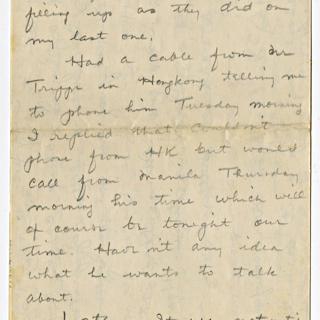 filling up as they did on
my last one.
Had a cable from Mr
Tripp in Hongkong telling me
to phone him Tuesday morning
I replied that couldn't
phone from HK but would
call from Manila Thursday
morning his time which will
of course be tonight our
time. Hav'n't any idea
what he wants to talk
about.